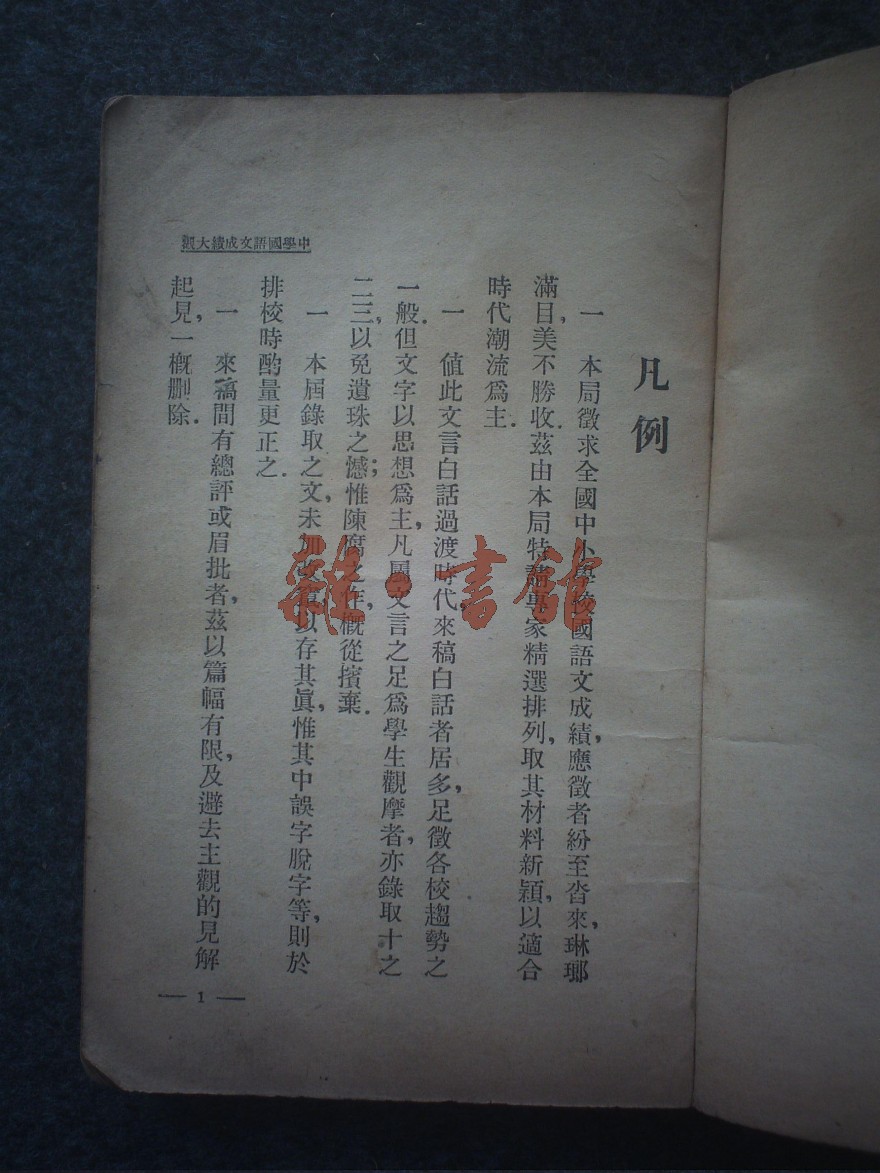 凡例
一　本局徵求全國中小學校國語文成績，應徵者紛至沓來，琳瑯
滿目，美不勝收．茲由本局特請專家精選排列，取其材料新穎，以適合
時代潮流爲主．
一　値此文言白話過渡時代，來稿白話者居多，足徵各校趨勢之
一般．但文字以思想爲主，凡屬文言之足爲學生觀摩者，亦錄取十之
二三，以免遺珠之憾；惟陳腐之作，概從擯棄．
一　本屆錄取之文，未加改竄，以存其眞，惟其中誤字脫字等，則於
排校時酌量更正之．
一　來稿間有總評或眉批者，茲以篇幅有限，及避去主觀的見解
起見，一概刪除．
中學國語文成績大觀
— 1 —
雜·書館